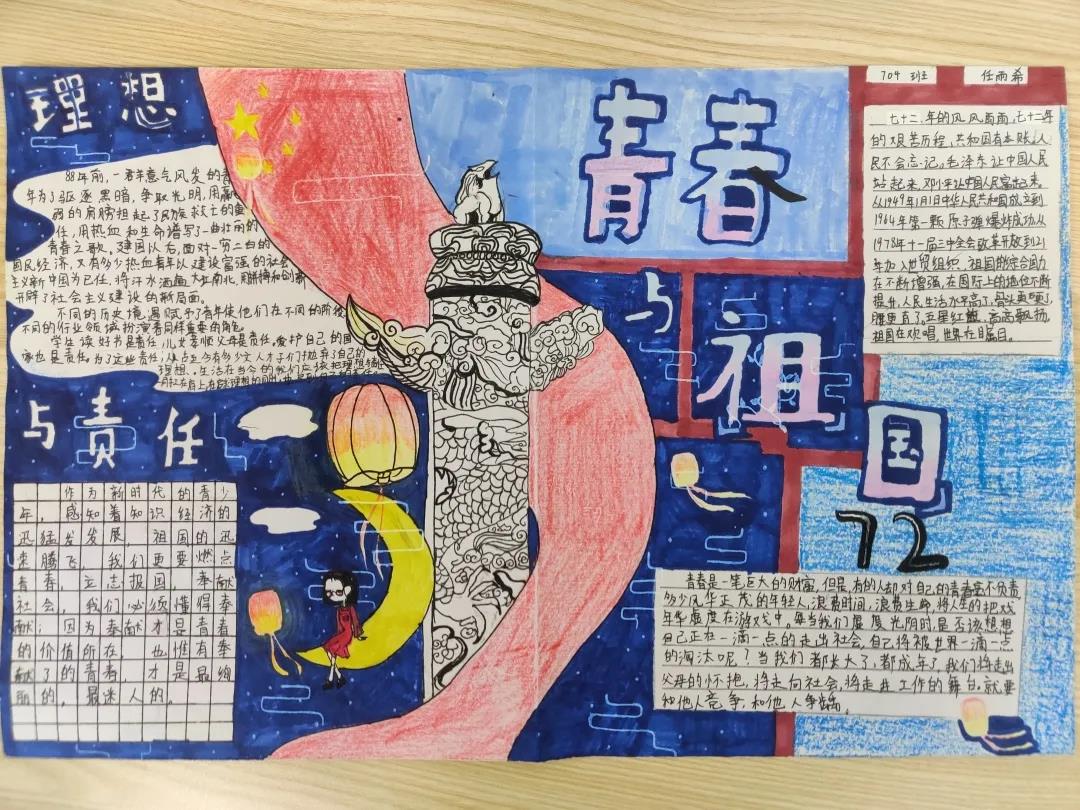 理想
88年前,一群意气风发的青
年为了驱逐黑暗,争取光明,用羸
弱的肩膀担起了民族救亡的重
任,用热血和生命谱写了一曲壮丽的
青春之歌,建国以后,面对一穷二白的
国民经济,又有多少热血青年以建设富强的社会
主义新中国为己任,将汗水洒遍大江南北,用拼搏和创新
开辟了社会主义建设的新局面。
不同的历史境遇赋予了青年使他们在不同的阶段
不同的行业领域扮演着同样重要的角色。
学生读好书是责任,儿女孝顺父母是责任,爱护自己的国
家也是责任,为了这些责任,从古至今有多少文人才子们抛弃自己的
理想。生活在当今的我们应该把理想
与责任
作为新时代的青少
年,感知着知识经济的
迅猛发发展,祖国的迅
来腾飞,我们更要燃点
青春,立志报国,奉献
社会,我们必须懂得奉
献;因为奉献才是青春
的价值所在,也惟有奉
献了的青春,才是最绚
丽的,最迷人的。
青春
与
祖
国
72
704 班
任雨希
七十二年的风风雨雨,七十二年
的艰苦历程,共和国有本账,人
民不会忘记。毛泽东让中国人民
站起来,邓小平让中国人民富起来。
从1949年1月1日中华人民共和国成立到
1964年第一颗原子弹爆炸成功从
1978年十一届三中全会改革开放到21
年加入世贸组织,祖国的综合国力
在不断增强,在国际上的地位不断
提升,人民生活水平高了,骨头更硬了,
腰更直了,五星红旗,高高飘扬,
祖国在欢唱,世界在瞩目。
青春是一笔巨大的财富,但是,有的人却对自己的青春毫不负责
多少风华正茂的年轻人,浪费时间,浪费生命,将人生的把戏
年华虚度在游戏中,每当我们虚度光阴时,是否该想想
自己正在一滴一点的走出社会,自己将被世界一滴一点
的淘汰呢?当我们都长大了,都成年了,我们将走出
父母的怀抱,将走向社会,将走进工作的舞台。就要
和他人竞争,和他人争夺。